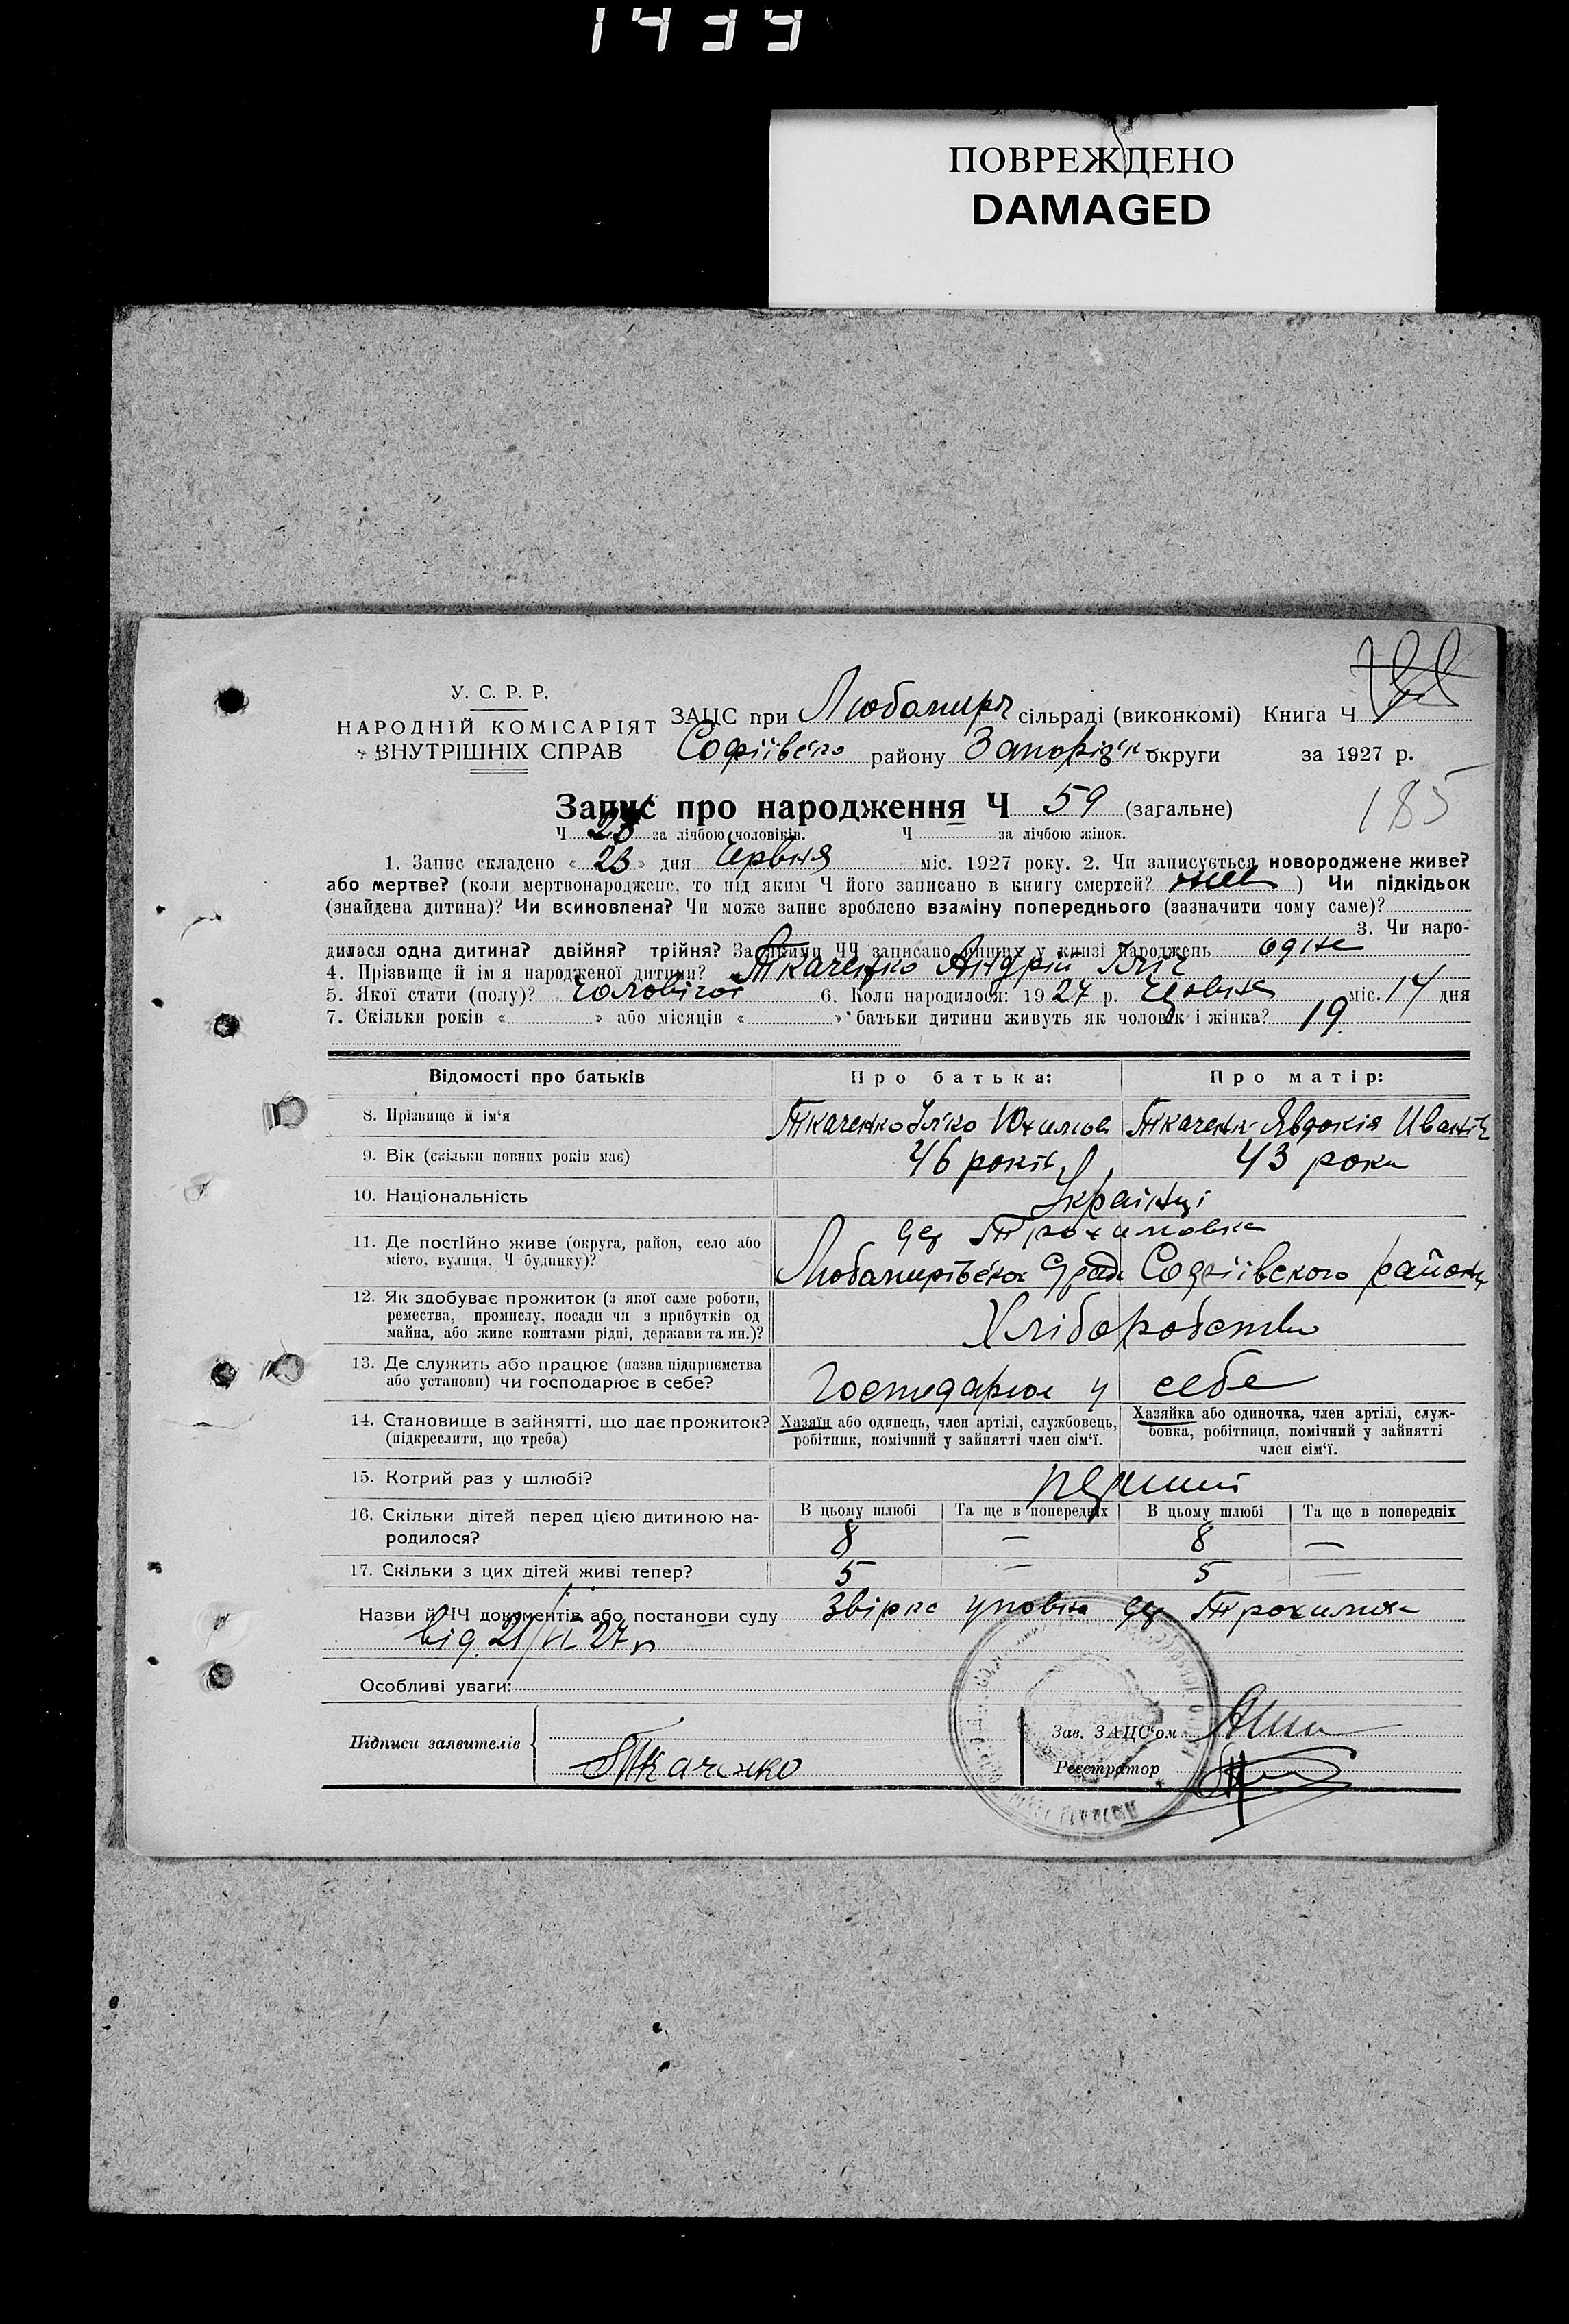 1439
ПОВРЕЖДЕНО
DAMAGED
У. С. Р. Р.
НАРОДНІЙ КОМІСАРІЯТ
ВНУТРІШНІХ СПРАВ
ЗАЦС при Любомирs сільраді (виконкомі) Книга Ч
Софіївсько району Запорізьк округи за 1927 р.
Запис про народження Ч 59 (загальне)
185
Ч 28 за лічбою чоловіків. Ч за лічбою жінок.
1. Запис складено «23» дня Червня міс. 1927 року. 2. Чи записується новороджене живе?
або мертве? (коли мертвонароджене, то під яким Ч його записано в книгу смертей? жив) Чи підкідьок
(знайдена дитина)? Чи всиновлена? Чи може запис зроблено взаміну попереднього (зазначити чому саме)?
3. Чи наро-
дилася одна дитина? двійня? трійня? За якими ЧЧ записано инших у книзі народжень одне
4. Прізвище й ім я народженої дитини? Ткаченко Андрій Ілліч
5. Якої стати (полу)? Чоловічої 6. Коли народилося: 1927 р. Червня міс. 14 дня
7. Скільки років « » або місяців « » батьки дитини живуть як чоловік і жінка? 19
Відомості про батьків Про батька: Про матір:
8. Прізвище й ім'я Ткаченко Ілько Юхимов Ткаченк Явдокія Иванів
9. Вік (скільки повних років має) 46 років 43 роки
10. Національність Українці
дер Трохимовка
11. Де постІйно живе (округа, район, село або
місто, вулиця, Ч будинку)? Любомирівська Срада Софіївского району
12. Як здобуває прожиток (з якої саме роботи,
ремества, промислу, посади чи з прибутків од
майна, або живе коштами рідні, держави та ин.)? Хліборобство
13. Де служить або працює (назва підприємства
або установи) чи господарює в себе? Господарює у себе
14. Становище в зайнятті, що дає прожиток? Хазяїн або одинець, член артілі, службовець, Хазяйка або одиночка, член артілі, служ-
(підкреслити, що треба) робітник, помічний у зайнятті член сім'ї. бовка, робітниця, помічний у зайнятті
член сім'ї.
15. Котрий раз у шлюбі? перший
16. Скільки дітей перед цією дитиною на- В цьому шлюбі Та ще в попередніх В цьому шлюбі Та ще в попередніх
родилося? 8 — 8 —
17. Скільки з цих дітей живі тепер? 5 — 5 —
Назви й ЧЧ документів або постанови суду Звірка уповн дер Трохимов
від 21/VI 27 р
Особливі уваги:
Підписи заявителів Ткаченко
Зав. ЗАЦС'ом
Реєстратор